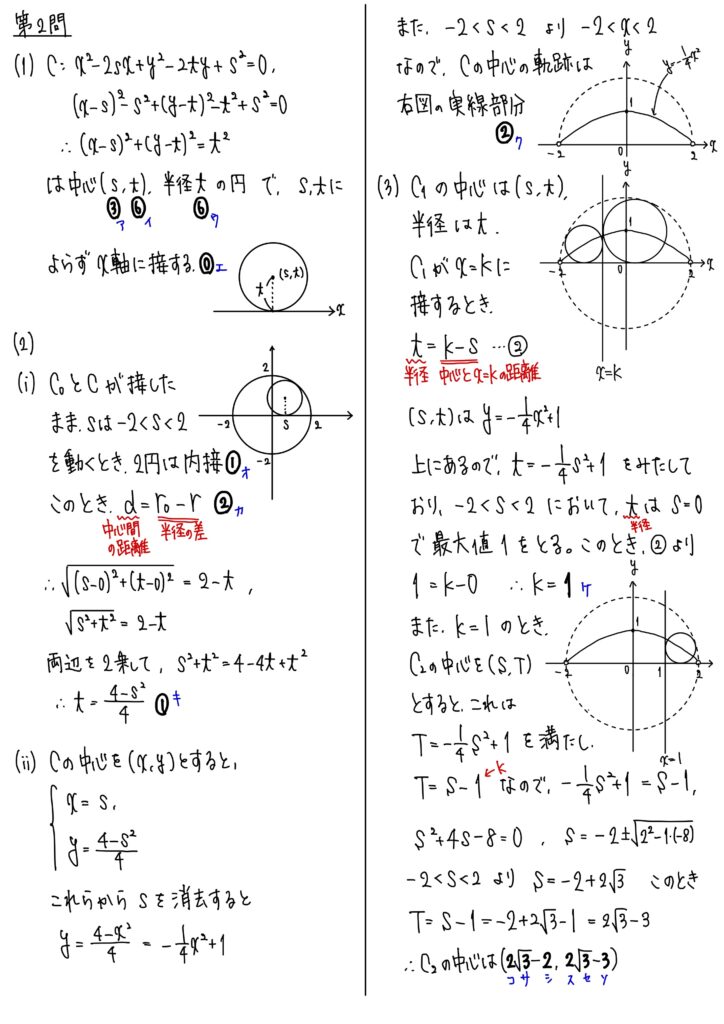 第2問
(1) C: x²-2sx+y²-2ty+s²=0,
(x-s)²-s²+(y-t)²-t²+s²=0
∴ (x-s)²+(y-t)²=t²
は中心(s,t), 半径tの円で, s,tに
③ ⑥ ⑥
ア イ ウ
よらずx軸に接する. ⓪エ
t (s,t)
x
(2)
(i) C₀とCが接した
まま, sは-2<s<2
を動くとき, 2円は内接①オ
2 -2 s 2 -2
このとき, d=r₀-r ②カ
中心間の距離 半径の差
∴ √(s-0)²+(t-0)² = 2-t,
√s²+t² = 2-t
両辺を2乗して, s²+t²=4-4t+t²
∴ t = (4-s²)/4 ①キ
(ii) Cの中心を(x,y)とすると,
x=s,
y=(4-s²)/4
これらから sを消去すると
y=(4-x²)/4 = -1/4x²+1
また, -2<s<2 より -2<x<2
なので, Cの中心の軌跡は
右図の実線部分
②ク
y y=-1/4x² 1 -2 0 2 x
(3) C₁の中心は(s,t),
半径はt.
C₁がx=kに
接するとき,
y 1 -2 0 2 x
x=k
t=k-s …②
半径 中心とx=kの距離
(s,t)は y=-1/4x²+1
上にあるので, t=-1/4s²+1 をみたして
おり, -2<s<2 において, tは s=0
半径
で最大値1をとる。このとき, ②より
1=k-0 ∴ k=1ケ
また, k=1のとき,
C₂の中心を(S,T)
とすると, これは
y 1 -2 0 1 2 x
x=1
T=-1/4S²+1 を満たし,
T=S-1←k なので, -1/4S²+1=S-1,
S²+4S-8=0, S=-2±√2²-1·(-8)
-2<S<2 より S=-2+2√3 このとき
T=S-1=-2+2√3-1=2√3-3
∴ C₂の中心は(2√3-2, 2√3-3)
コ サ シ ス セ ソ